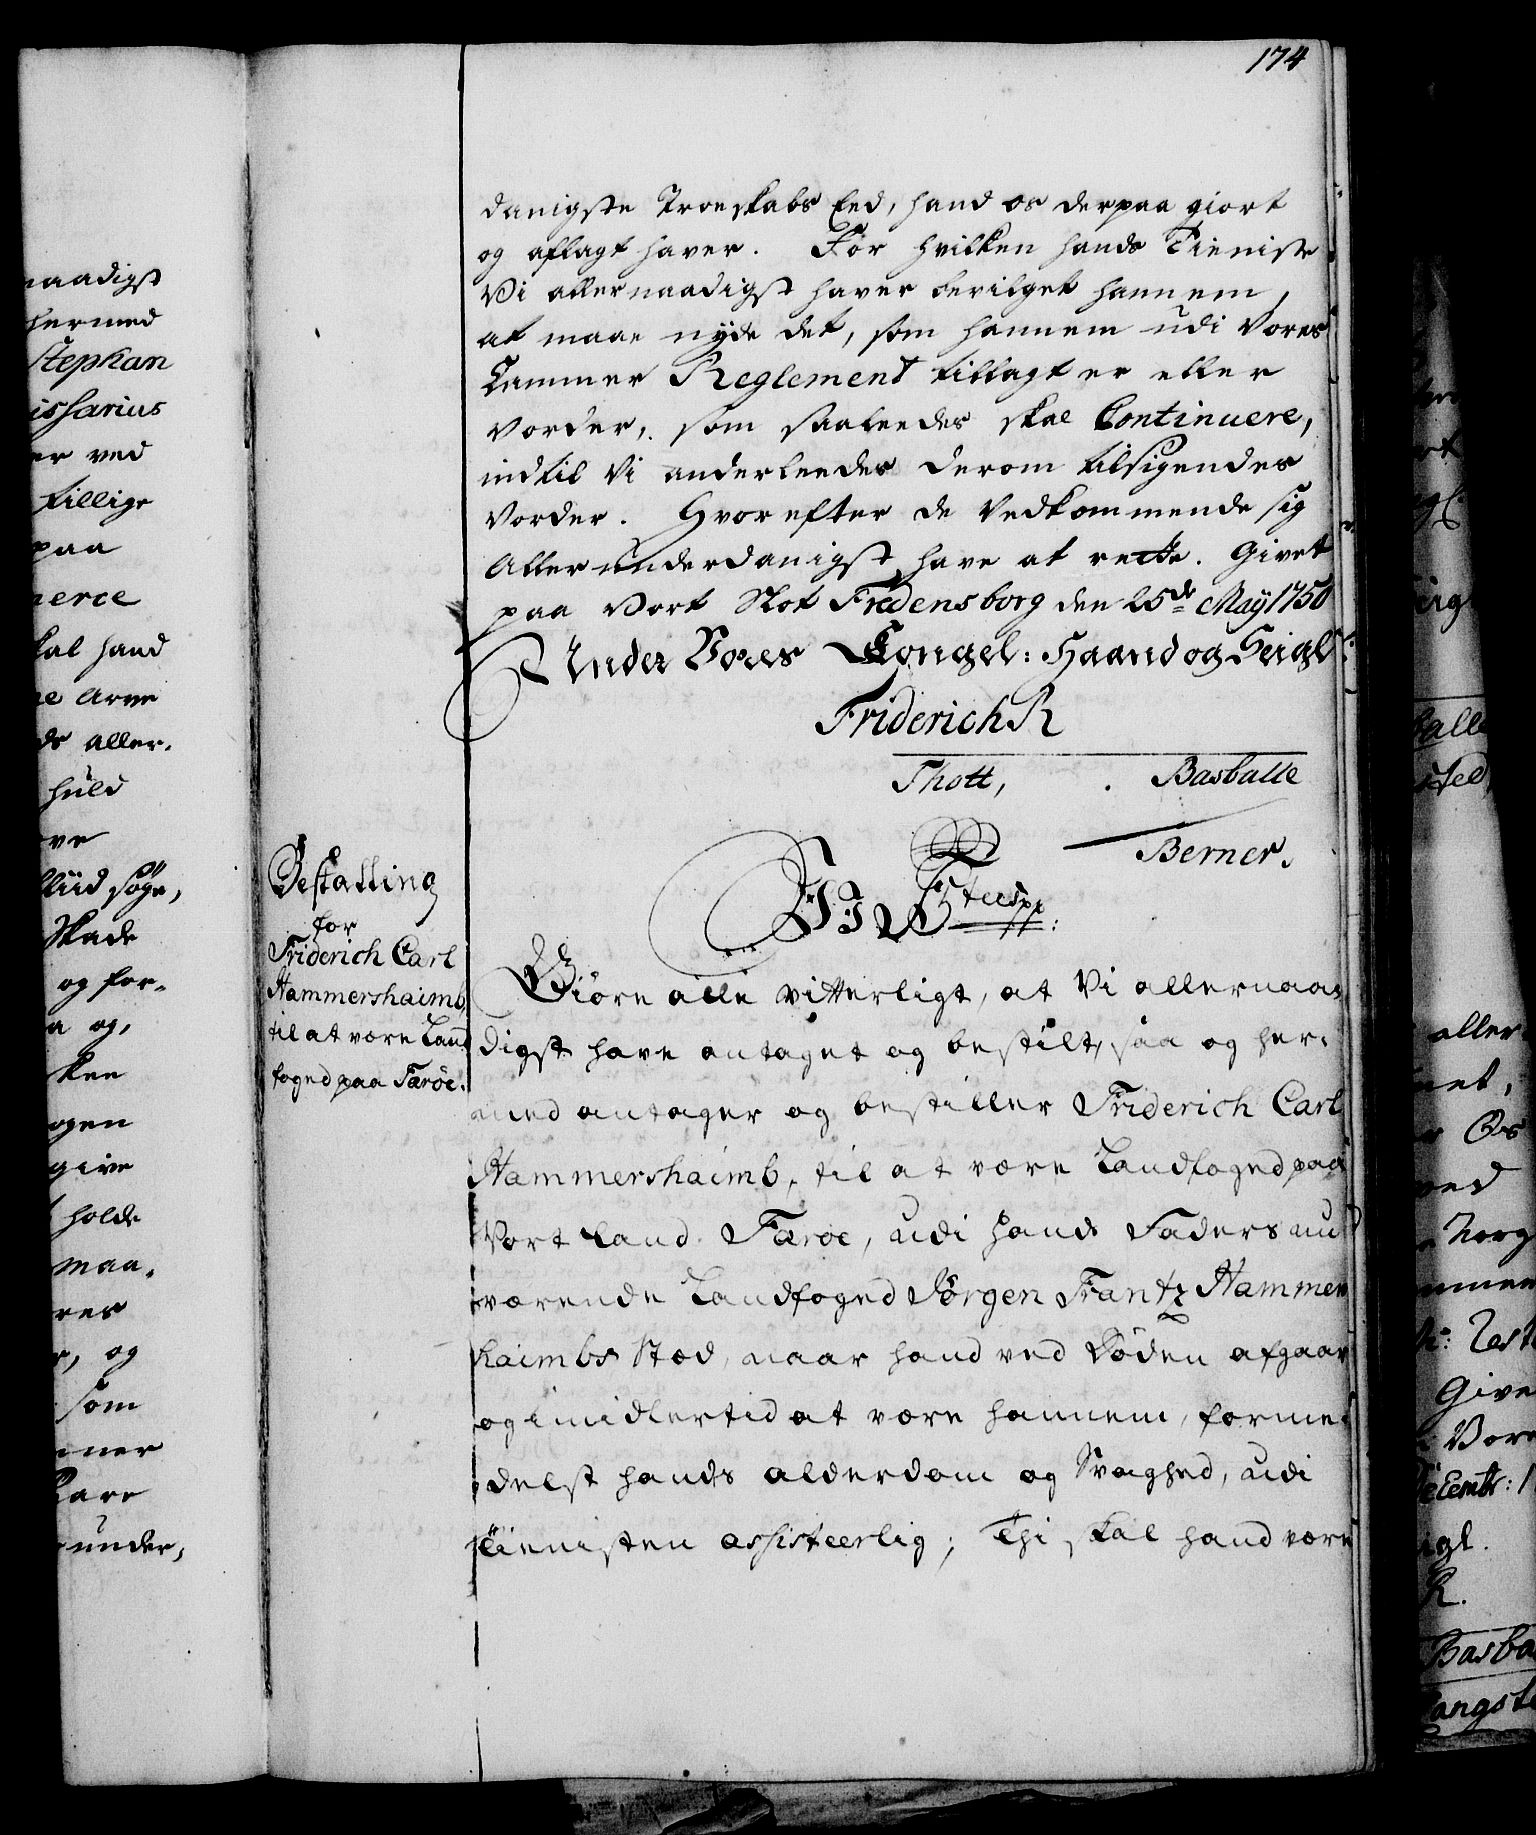 174
danigste Troeskabs Eed, hand os derpaa giort
og aflagt haver. For hvilken hands Tieniste
Vi allernaadigst haver bevilget hannem,
at maae nyde det, som hannem udi Vores
Cammer Reglement tillagt er eller
vorder, som saaleedes skal Continuere,
indtil Vi anderleedes derom tilsigendes
vorder. Hvorefter de Vedkommende sig
allerunderdanigst have at rette. Givet
paa Vort Slot Fredensborg den 25de May 1750
Under Vores Kongel: Haand og Seigl
Friderich R
Thott, Basballe
Berner.
Bestalling
for
Friderich Carl
Hammershaimb,
til at være Land
foged paa Færöe.
Giöre alle vitterligt, at Vi allernaa-
digst have antaget og bestilt, saa og her-
med antager og bestiller Friderich Carl
Hammershaimb, til at være Landfoged paa
Vort Land Færöe, udi hands Faders nu
værende Landfoged Jörgen Frantz Hammers
haimbs Stæd, naar hand ved Döden afgaar
og imidlertid at være hannem, forme-
delst hands alderdom og Svaghed, udi
Tienisten assisteerlig; Thi skal hand være
naadigst
hermed
Stephan
issarius
er ved
tillige
paa
merce
skal hand
Arve
ds aller-
huld
söge,
Skade
og for-
a og,
ogen
give
holde
maa-
res
, og
som
ner
under,
aller
Givet